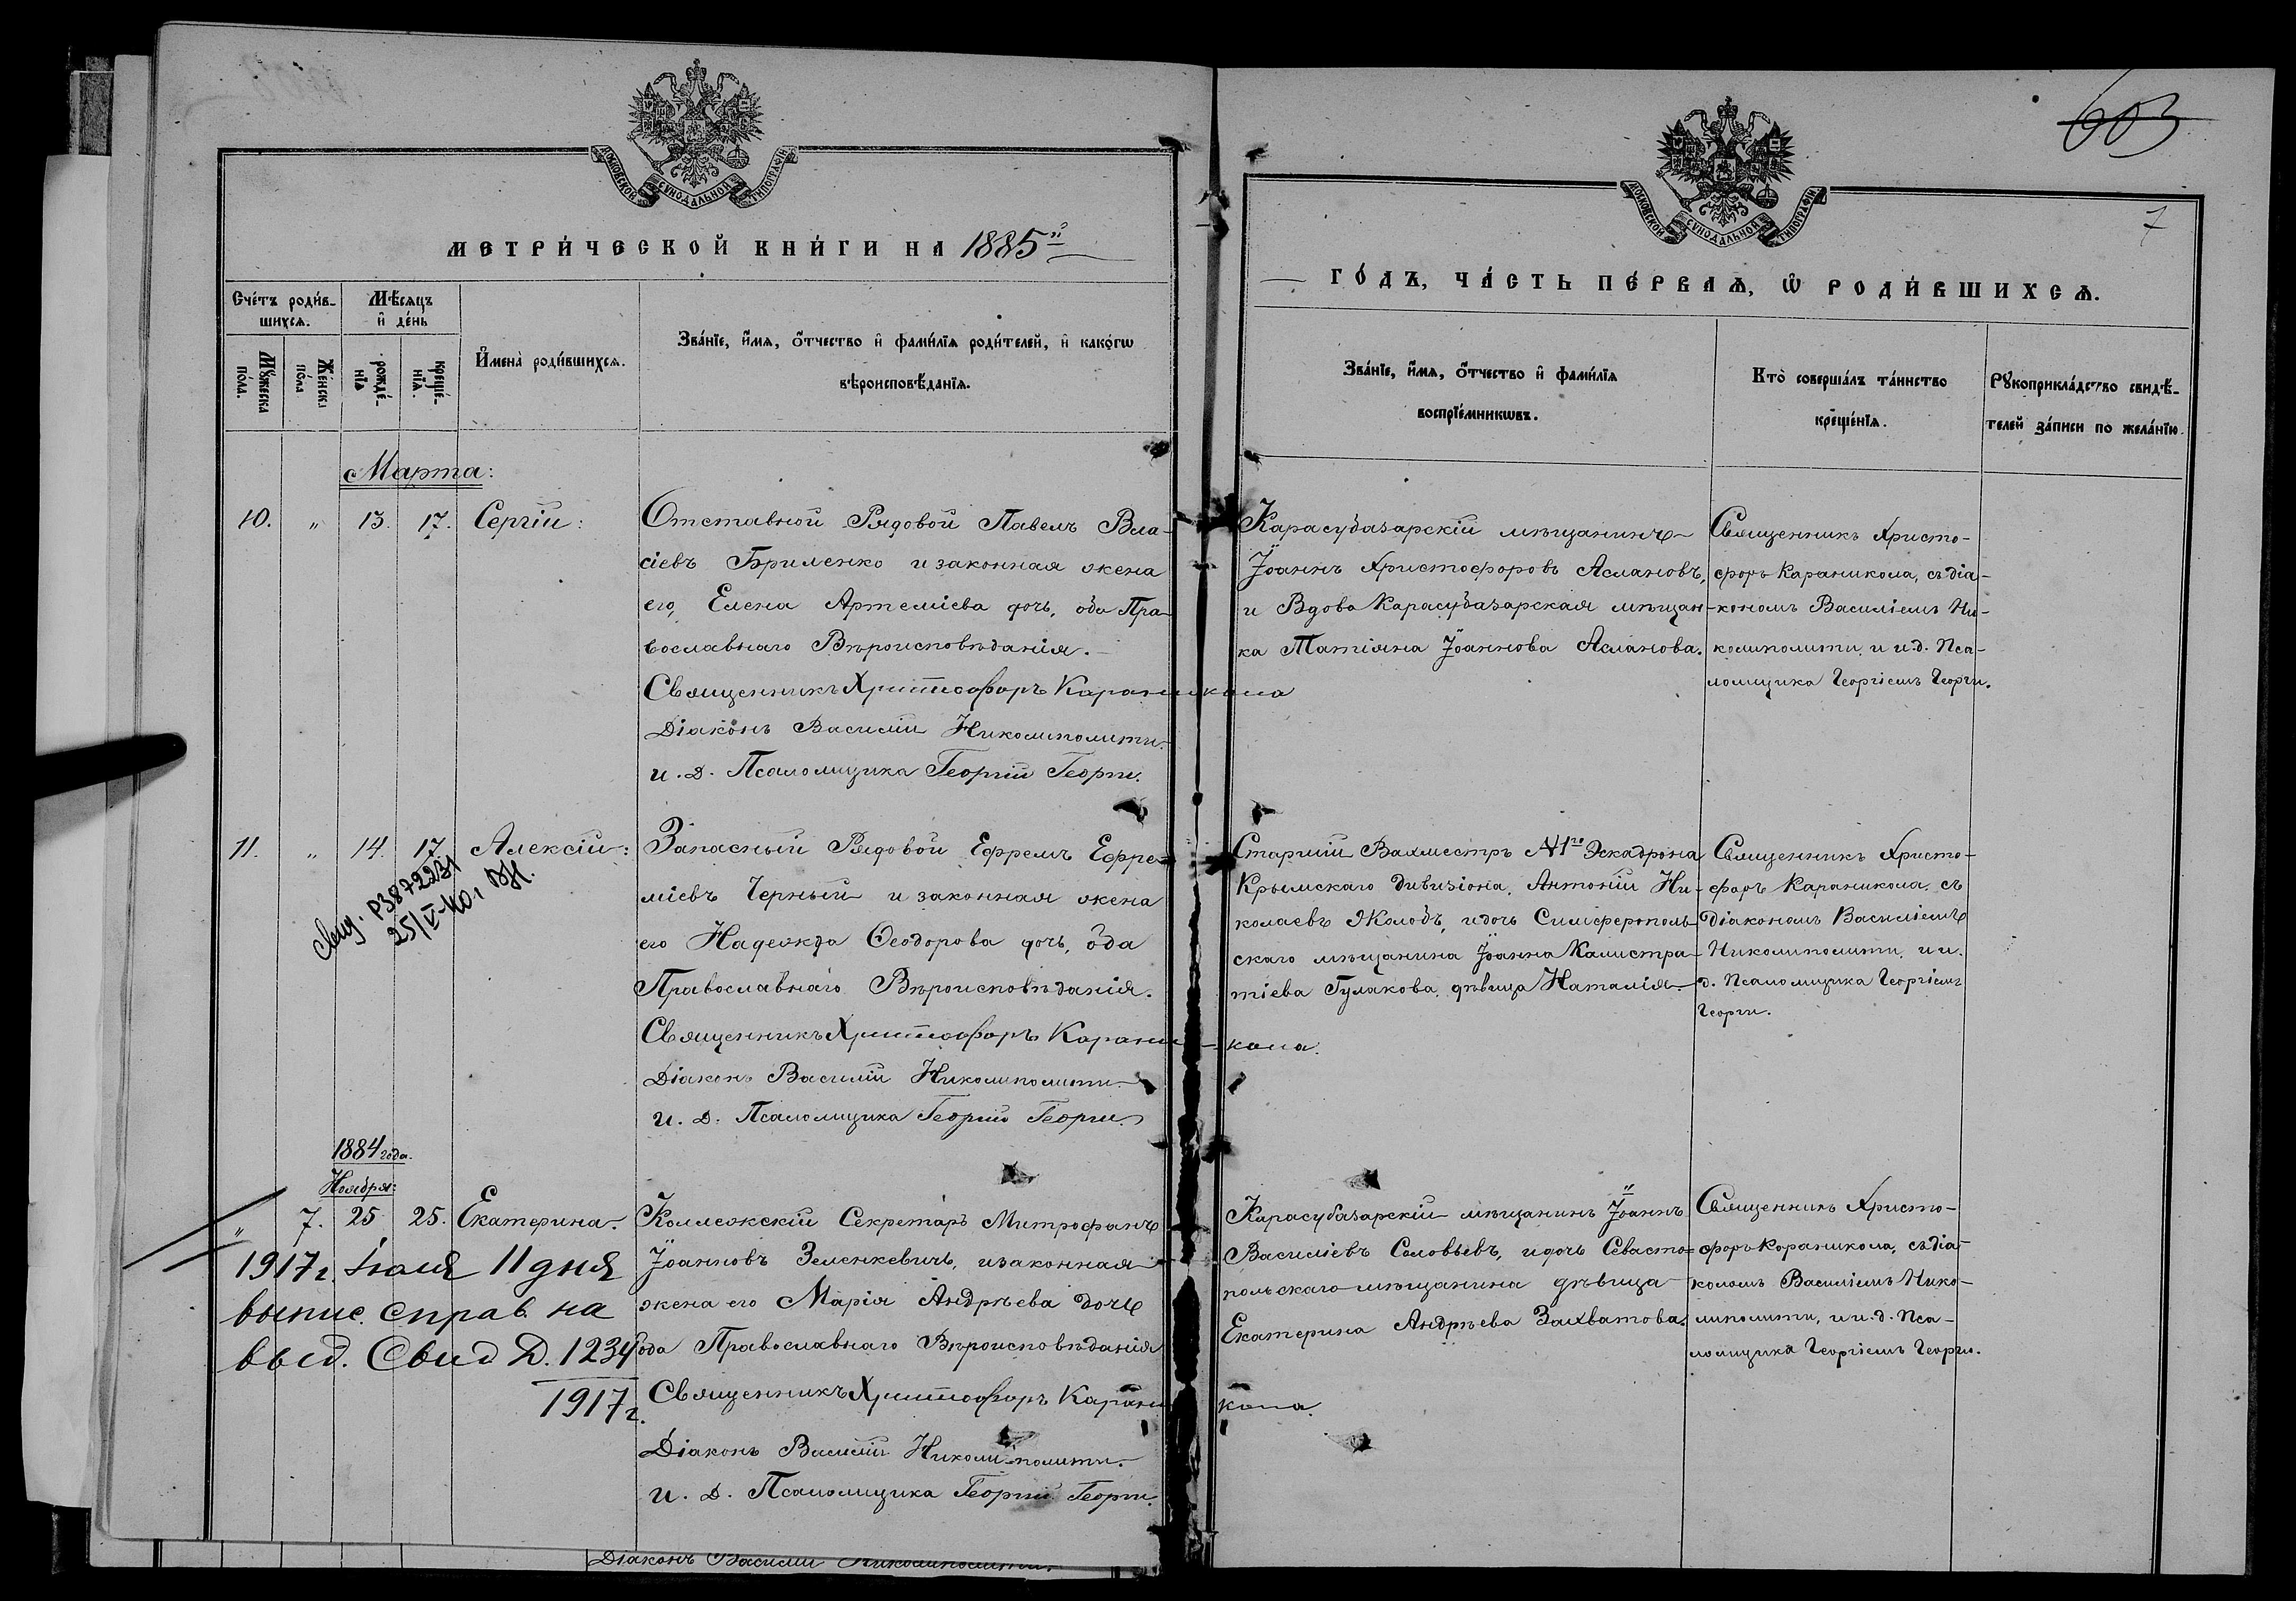 МОСКОВСКОЙ СѴНОДАЛЬНОЙ ТИПОГРАФІИ
МЕТРИ́ЧЕСКОЙ КНИ́ГИ НА 1885й
Сче́тъ роди́в-
шихсѧ.
Мѣ́сѧцъ
и҆ де́нь
Мꙋ́жеска
по́ла.
Же́нска
по́ла
рожде́-
нїѧ
креще́-
нїѧ.
И҆мена̀ роди́вшихсѧ.
Зва́нїе, и҆́мѧ, ѻ҆́тчество и҆ фами́лїѧ роди́телей, и҆ како́гѡ
вѣроисповѣ́данїѧ.
Марта:
10. " 13. 17. Сергій:
Отставной Рядовой Павелъ Вла-
сіевъ Бриленко и законная жена
его, Елена Артеміева дочь, оба Пра-
вославнаго Вѣроисповѣданія.
Священникъ Христофоръ Караникола
Діаконъ Василій Николиполити.
И. Д. Псаломщика Георгій Георги.
11. " 14. 17 Алексій:
25/V-40г ВН.
Запасный Рядовой Ефремъ Ефре-
міевъ Черный и законная жена
его Надежда Ѳеодорова дочь, оба
Православнаго Вѣроисповѣданія.
Священникъ Христофоръ Карани-кола.
Діаконъ Василій Николиполити.
И. Д. Псаломщика Георгій Георги.
1884 года.
Ноября:
" 7. 25 25. Екатерина.
1917 г. Іюля 11 дня
выпис. справ. на
выд. Свид Д. 1234
1917 г.
Коллежскій Секретарь Митрофанъ
Іоанновъ Зеленкевичъ, и законная
жена его Марія Андрѣева дочь
оба Православнаго Вѣроисповѣданія
Священникъ Христофоръ Караникола.
Діаконъ Василій Николиполити.
И. Д. Псаломщика Георгій Георги.
Діаконъ Василій Николиполити.
603
7
МОСКОВСКОЙ СѴНОДАЛЬНОЙ ТИПОГРАФІИ
ГО́ДЪ, ЧА́СТЬ ПЕ́РВАѦ, Ѽ РОДИ́ВШИХСѦ.
Зва́нїе, и҆́мѧ, ѻ҆́тчество и҆ фами́лїѧ
воспрїе́мникѡвъ.
Кто̀ соверша́лъ та́инство
креще́нїѧ.
Рꙋкоприкла́дство свидѣ́-
телей за́писи по жела́нїю.
Карасубазарскій мѣщанинъ
Іоаннъ Христофоровъ Аслановъ,
и Вдова Карасубазарская мѣщан-
ка Татіяна Іоаннова Асланова.
Священникъ Христо-
форъ Караникола, съ діа-
кономъ Василіемъ Ни-
колиполити, и и.д. Пса-
ломщика Георгіемъ Георги.
Старшій Вахмистръ №1го Эскадрона
Крымскаго Дивизіона, Антоній Ни-
колаевъ Жолобъ, и дочь Симферополь-
скаго мѣщанина Іоанна Калистра-
тіева Гулакова, дѣвица Наталія.
Священникъ Христо-
форъ Караникола, съ
діакономъ Василіемъ
Николиполити, и и.
д. Псаломщика Георгіемъ
Георги.
Карасубазарскій мѣщанинъ Іоаннъ
Василіевъ Соловьевъ, и дочь Севасто-
польскаго мѣщанина дѣвица
Екатерина Андрѣева Захватова.
Священникъ Христо-
форъ Караникола, съ діа-
кономъ Василіемъ Нико-
липолити, и и.д. Пса-
ломщика Георгіемъ Георги.